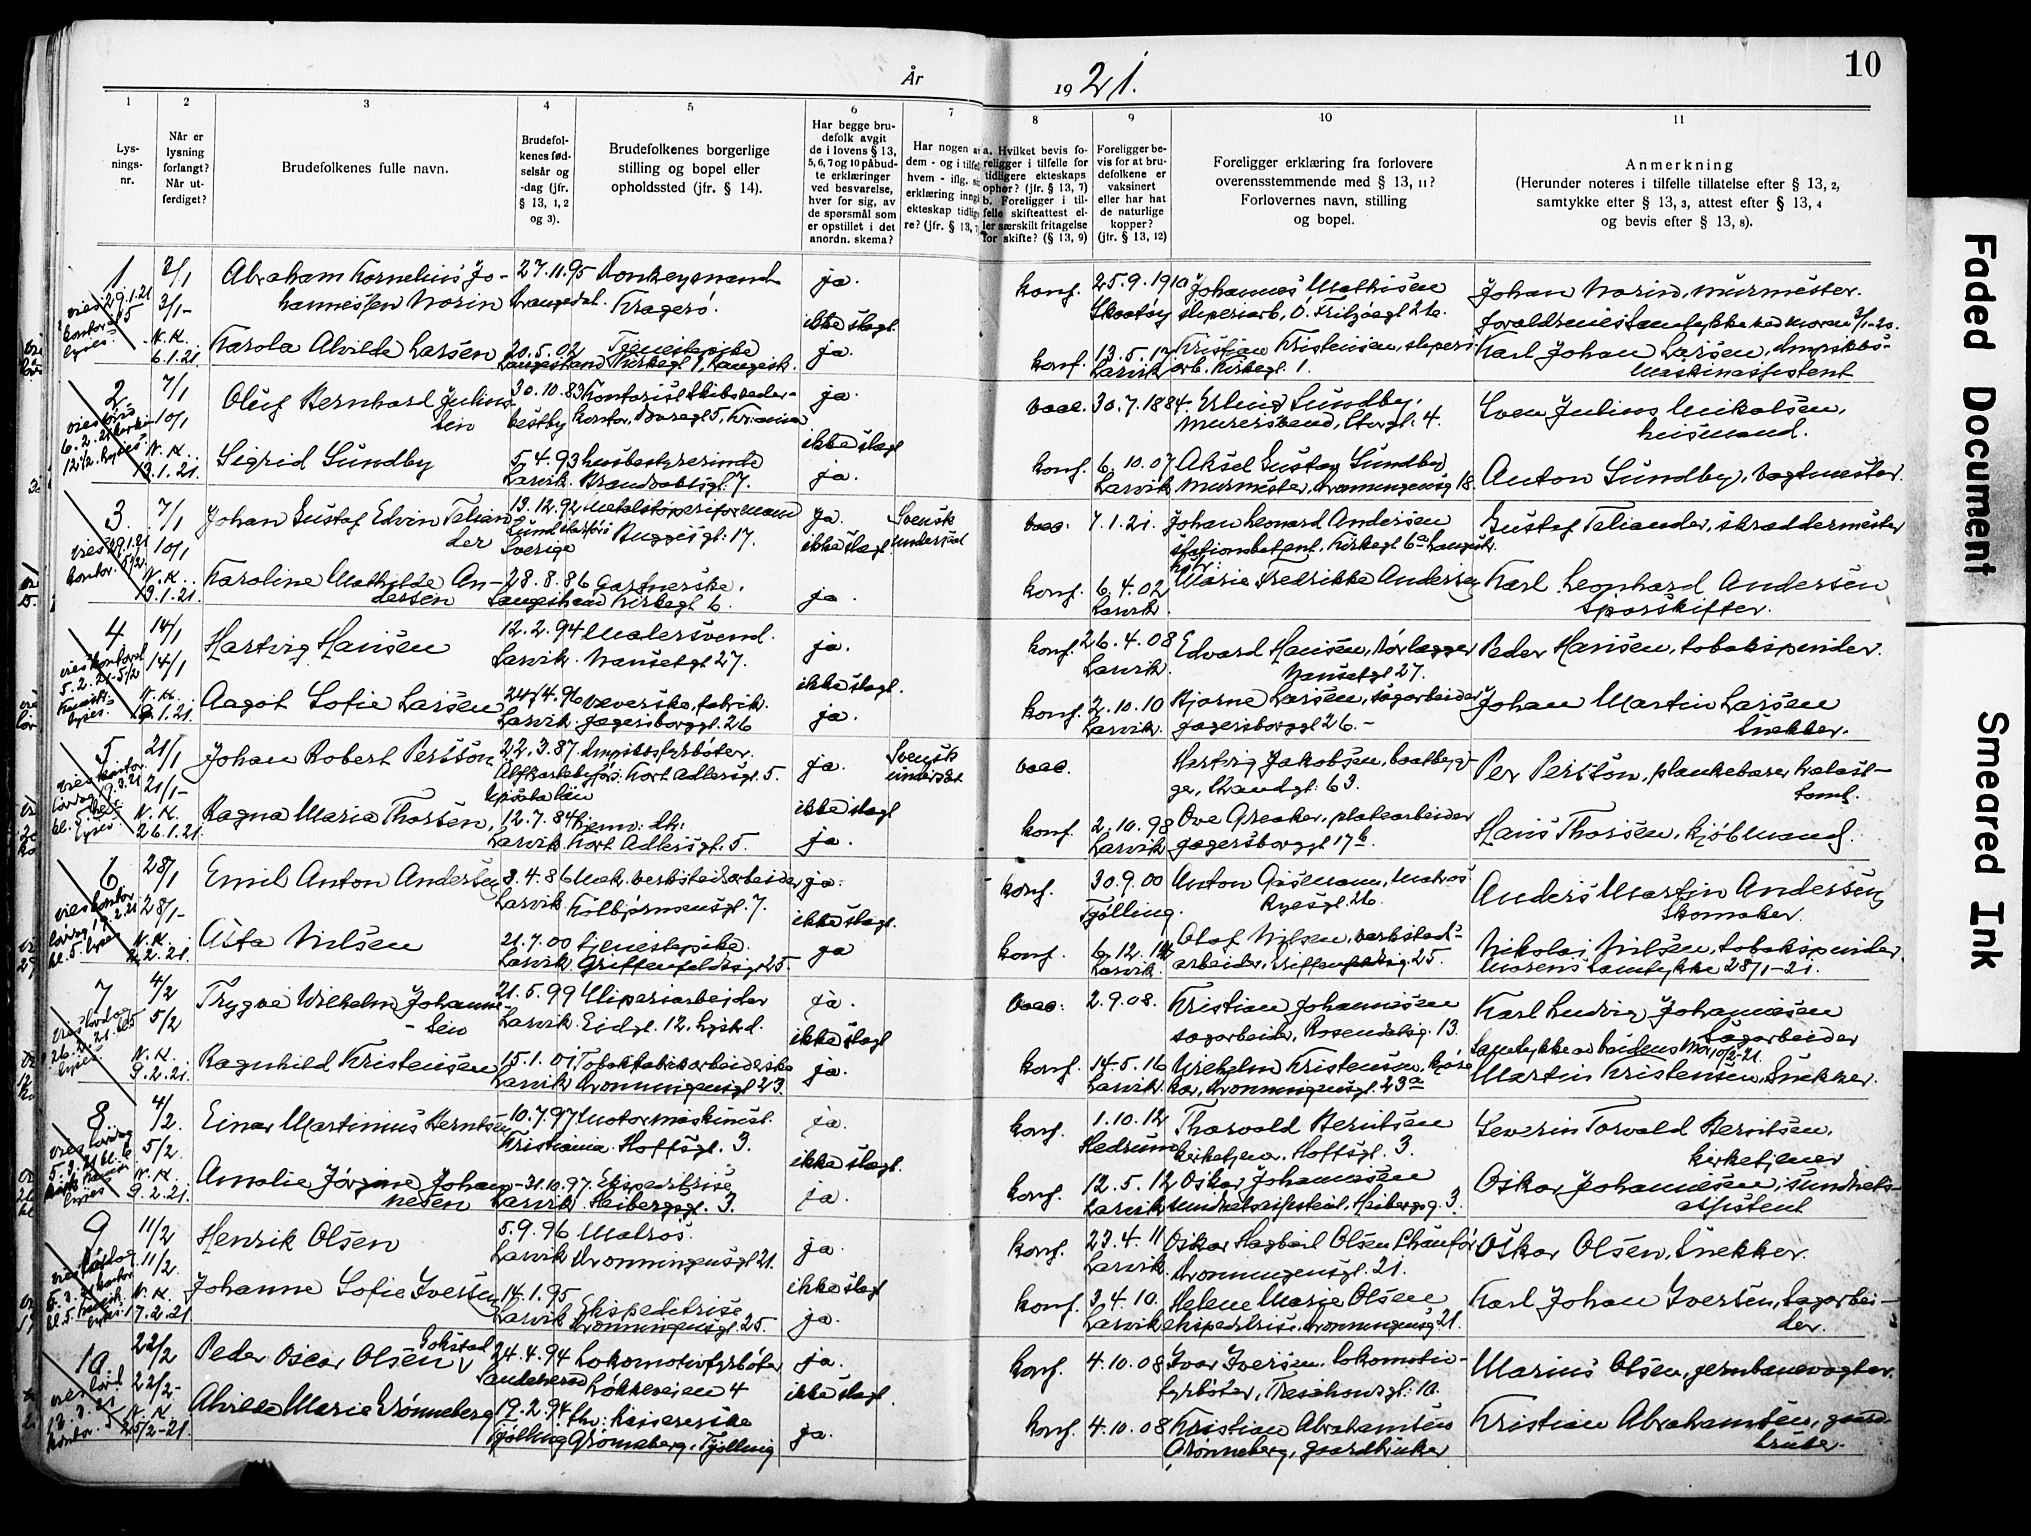 10
År 1921.
1 2 3 4 5 6 7 8 9 10 11
Lys-
nings-
nr.
Når er
lysning
forlangt?
Når ut-
ferdiget?
Brudefolkenes fulle navn.
Brudefol-
kenes fød-
selsår og
-dag (jfr.
§ 13, 1, 2
og 3).
Brudefolkenes borgerlige
stilling og bopel eller
opholdssted (jfr. § 14).
Har begge bru-
defolk avgit
de i lovens § 13,
5, 6, 7 og 10 påbud-
te erklæringer
ved besvarelse,
hver for sig, av
de spørsmål som
er opstillet i det
anordn. skema?
Har nogen a
dem - og i tilfel
hvem - iflg. si
erklæring inngå
ekteskap tidlig
re? (jfr. § 13,
a. Hvilket bevis fo-
religger i tilfelle for
tidligere ekteskaps
ophør? (jfr. § 13, 7)
b. Foreligger i til-
felle skifteattest el-
ler særskilt fritagelse
for skifte? (§ 13, 9)
Foreligger be-
vis for at bru-
defolkene er
vaksinert
eller har hat
de naturlige
kopper?
(jfr. § 13, 12)
Foreligger erklæring fra forlovere
overensstemmende med § 13, 11?
Forlovernes navn, stilling
og bopel.
Anmerkning
(Herunder noteres i tilfelle tillatelse efter § 13, 2,
samtykke efter § 13, 3, attest efter § 13, 4
og bevis efter § 13, 8).
1
3/1-
N.K.
6.1.21
Abraham Kornelius Jo-
hannessen Norin
27.11.95
Donkeymand
Kragerø.
ja.
konf.
25.9.1910
Skaatøy
Johannes Mathisen
sliperiarb, Ø. Fritzøegt 26.
Johan Norin, murmester.
ikke slegt
Karola Alvilde Larsen
20.5.02
Langestrand
Tjenestepike
Kirkegt 1, Langestr.
ja.
konf.
13.5.17
Larvik
Kristian Kristensen, sliperi-
arb. Kirkegt. 1.
Karl Johan Larsen,
Maskinassistent
2
7/1
10/1
N.K.
13.1.21
Oluf Bernhard Julius-
sen
30.10.83
Vestby
Kontorist Skibsreder-
kontor,
ja.
vacc.
30.7.1884.
Erling Sundby,
Murersvend, Storgt. 4.
Sven Julius Nikolsen,
husmand.
ikke slegt
Sigrid Sundby
5.4.93
Larvik
husbestyrerinde
Brandvaktsgt. 7.
ja.
konf.
6.10.07
Larvik
Aksel Gustav Sundby
Murmester, Dronningensg 18.
Anton Sundby, Vagtmester.
3
7/1
10/1
N.K.
13.1.21.
Johan Gustaf Edvin Telian
der
13.12.92
Sverige
Metalstøperiformand
Bugges gt. 17.
ja.
ikke slegt
Svensk
undersaat
vacc.
7.1.21.
Johan Leonard Andersen
stationsbetjent, Kirkegt 6a Langestr.
Gustaf Teliander, skræddermester
Karoline Mathilde An-
dersen
28.8.86
Langestrand
Gartnerske,
Kirkegt 6.
ja.
konf.
6.4.02
Larvik
Marie Fredrikke Andersen
Karl Leonhard Andersen
Sporskifter.
4
14/1
14/1
N.K.
19.1.21.
Hartvig Hansen
12.2.94
Larvik.
Malersvend.
Nansetgt 27.
ja.
konf.
26.4.08
Larvik.
Edvard Hansen, Rørlægger
Nansetgt 27.
Peder Hansen, tobakspinder.
ikke slegt.
Aagot Sofie Larsen
24/4.96
Larvik.
Væverske, fabrik.
Jægersborggt. 26
ja.
konf.
2.10.10
Larvik.
Bjarne Larsen, sagarbeider
Jægersborggt 26.-
Johan Martin Larsen
Snekker.
5
21/1
21/1-
N.K.
26.1.21.
Johan Robert Persson
22.3.87.
Upsala län
Kort Adlersgt. 5.
ja.
Svensk
undersåt
vacc.
Hartvig Jakobsen, baatbyg-
ger, Strandgt. 63.
Per Persson, plankebærer
ikke slegt
Ragna Maria Thorsen,
12.7.84
Larvik.
Kort Adlersgt. 5.
ja.
konf.
2.10.98
Larvik
Ove Greaker, platearbeider
Jægersborggt 17b.
Hans Thorsen, kjøbmand.
6
28/1
28/1-
N.K.
2.2.21.
Emil Anton Andersen
3.4.86
Larvik
Mek. verkstedsarbeider
Kolbjørnsensgt. 7.
ja.
konf.
30.9.00
Tjølling.
Anton Gasmann, Matros
Ryesgt. 26.
Anders Martin Andersen
Skomaker.
ikke slegt.
Asta Nilsen
21.7.00
Larvik
tjenestepike.
Griffenfeldtsgt 25.
ja
konf.
6.12.14
Larvik
Olaf Nilsen, verksted-
arbeider, Griffenfeldtsg. 25.
Nikolai Nilsen, tobakspinder
Morens samtykke 28/1-21.
7
4/2
5/2
N.K.
9.2.21.
Trygve Wilhelm Johanne-
-sen
21.5.99
Larvik.
Sliperiarbeider
Eidgt. 12,
ja.
vacc.
2.9.08.
Kristian Johannesen
sagarbeider, Rosendalsg. 13.
Karl Ludvig Johannesen
Sagarbeider
ikke slegt
Ragnhild Kristensen
15.1.01
Larvik
Tobakfabrikarbeiderske
Dronningensgt 23.
ja.
konf.
14.5.16
Larvik
Wilhelm Kristensen,
Dronningensgt. 23a
Samtykke av brudens Mor, 10/2-21.
Martin Kristensen, Snekker.
8
4/2.
5/2.
N.K.
9.2.21.
Einar Martinius Berntsen
10.7.97
Kristiania.
Motormaskinist.
Hoffsgt. 3.
ja.
konf.
1.10.12
Hedrum
Thorvald Berntsen
kirketjener. Hoffsgt. 3
Severin Torvald Berntsen,
kirketjener
ikke slegt.
Amalie Jørgine Johan-
nesen
31.10.97.
Larvik
Ekspeditrise
Heibergsgt. 3.
ja.
konf.
12.5.12
Larvik
Oskar Johannesen
Sundhetsassistent, Heibergsg. 3.
Oskar Johannesen, sundhets-
assistent
9
11/2
11/2.
N.K.
17.2.21
Henrik Olsen
5.9.96
Larvik
Matros.
Dronningensgt 21.
ja
konf.
23.4.11
Larvik.
Oskar Hagbart Olsen Chauffør
Dronningensgt. 21.
Oskar Olsen, Snekker.
ikke slegt
Johanne Sofie Iversen
14.1.95
Larvik
Ekspeditrise
Dronningensgt. 25.
ja.
konf.
3.4.10.
Larvik
Helene Marie Olsen
ekspeditrise, Dronningensg 21.
Karl Johan Iversen, Sagarbei-
der.
10
22/2
22/2-
N.K.
25/2-21.
Peder Oscar Olsen Gokstad
24.4.94
Sandeherred
Lokomotivfyrbøter
Løkkeveien 4
ja.
konf.
4.10.08
Ivar Iversen, lokomotiv-
fyrbøter, Treschowsgt. 10.
Marius Olsen, jernbanevogter.
ikke slegt
Alvilde Marie Grønneberg
19.2.94.
Tjølling
Grønneberg, Tjølling
ja.
konf.
4.10.08
Kristian Abrahamsen
Grønneberg, gaardbruker
Kristian Abrahamsen, gaard-
bruker.
Faded Document
Smeared Ink